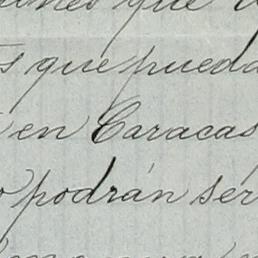 que
que pueda
en Caracas
podrán ser